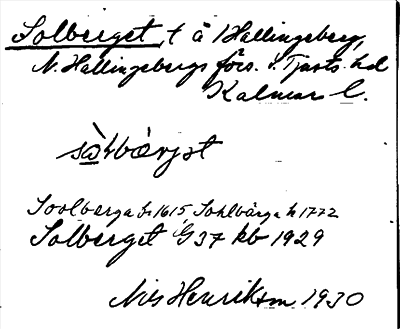 Solberget, t å Hallingeberg,
N. Hallingebergs förs. S. Tjusts hd
Kalmar l.
sɷ̀ɫbærjət
Soolberga b. 1615, Sohlbärga h 1772
Solberget G 37 kb 1929
Nils Henrikson 1930